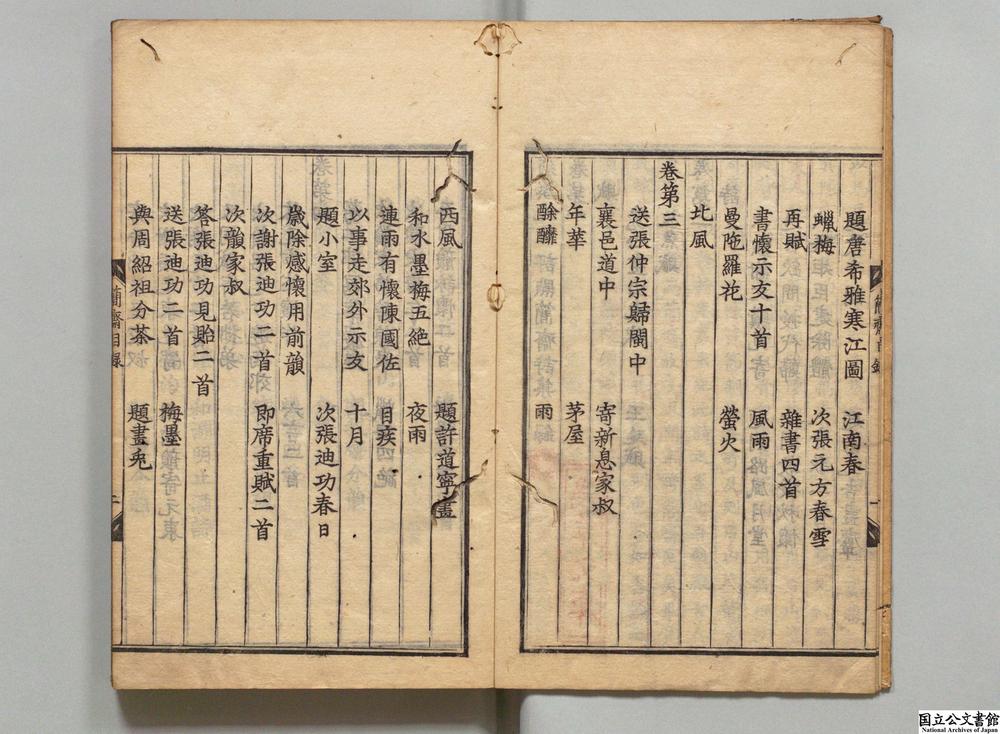 題唐希雅寒江圖　江南春
蠟梅　次張元方春雪
再賦　雜書四首
書懷示友十首　風雨
曼陁羅花　螢火
北風
卷第三
送張仲宗歸閩中
襄邑道中　寄新息家叔
年華　茅屋
酴醾　雨
西風　題許道寧畫
和水墨梅五絶　夜雨
連雨有懷陳國佐　目疾四絶
以事走郊外示友　十月
題小室　次張迪功春日
歲除感懷用前韻
次謝張迪功二首　即席重賦二首
次韻家叔
答張迪功見貽二首
送張迪功二首　梅墨
與周紹祖分茶　題畫兎
簡齋目錄
二
国立公文書館
National Archives of Japan